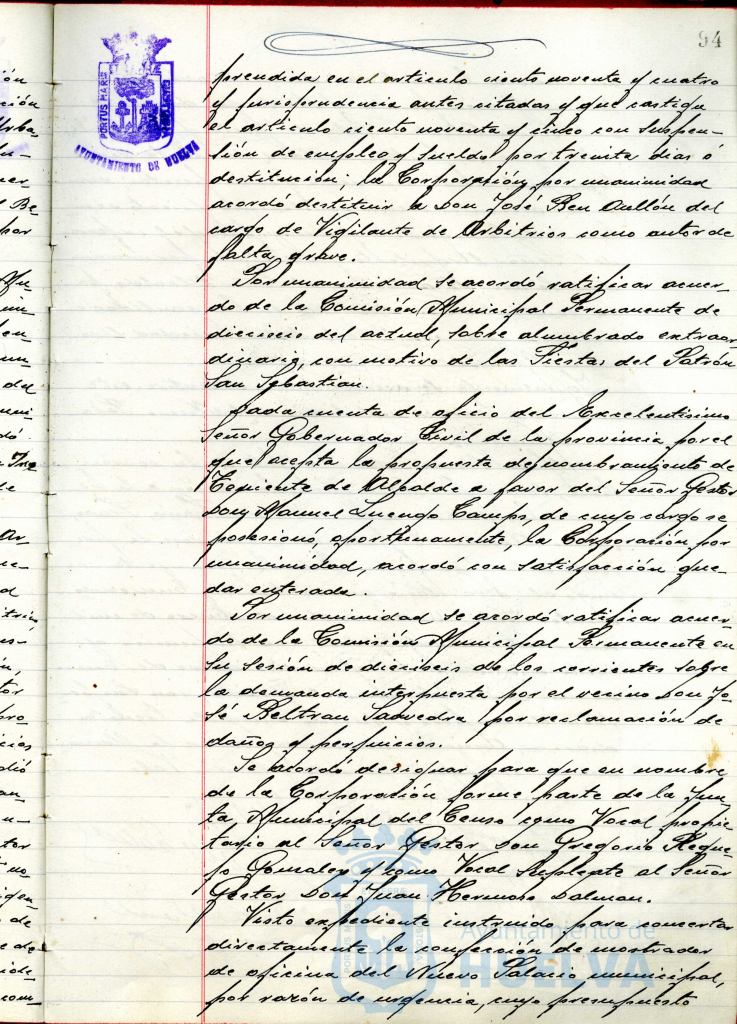 94
PORTUS MARIS
AYUNTAMIENTO DE HUELVA
prendida en el articulo ciento noventa y cuatro
y jurisprudencia antes citadas y que castiga
el articulo ciento noventa y cinco con suspen-
sión de empleo y sueldo por treinta dias ó
destitución; la Corporación por unanimidad
acordó destituir a Don José Ben Aullón del
cargo de Vigilante de Arbitrios como autor de
falta grave.
Por unanimidad se acordó ratificar acuer-
do de la Comisión Municipal Permanente de
dieciocio del actual, sobre alumbrado extraor
dinario, con motivo de las Fiestas del Patrón
San Sebastian.
Dada cuenta de oficio del Excelentisimo
Señor Gobernador Civil de la provincia por el
que acepta la propuesta de nombramiento de
Teniente de Alcalde a favor del Señor Gestor
Don Manuel Luengo Camps, de cuyo cargo se
posesionó, oportunamente, la Corporación por
unanimidad, acordó con satisfacción que-
dar enterada.
Por unanimidad se acordó ratificar acuer-
do de la Comisión Municipal Permanente en
su sesión de dieciseis de los corrientes sobre
la demanda interpuesta por el vecino Don Jo-
sé Beltran Saavedra por reclamación de
daños y perjuicios.
Se acordó designar para que en nombre
de la Corporación forme parte de la Jun-
ta Municipal del Censo como Vocal propie-
tario al Señor Gestor Don Gregorio Reque-
jo Gonzalez y como Vocal Suplente al Señor
Gestor Don Juan Hermoso Dalman.
Visto expediente instruido para concertar
directamente la confección de mostrador
de oficina del Nuevo Palacio municipal,
por razón de urgencia, cuyo presupuesto
Ayuntamiento de
HUELVA